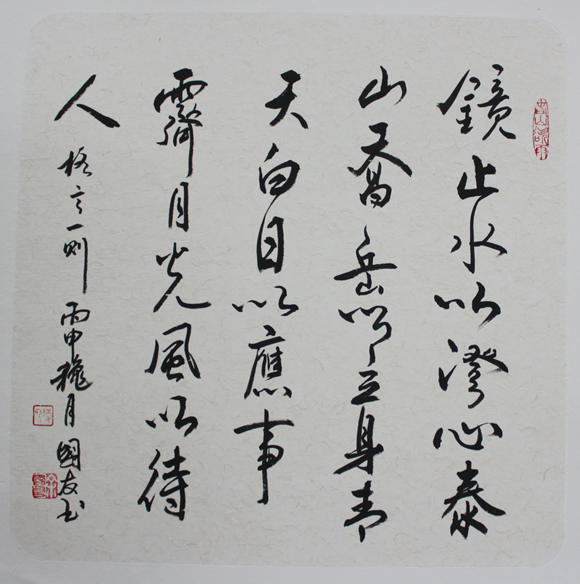 鏡止水以澄心泰
山喬岳以立身青
天白日以應事
霽月光風以待
人
格言一則 丙申穐月國友书